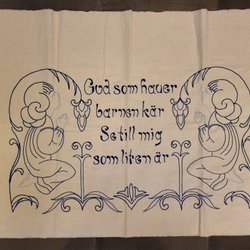 Gud som haver
barnen kär
Se till mig
som liten är